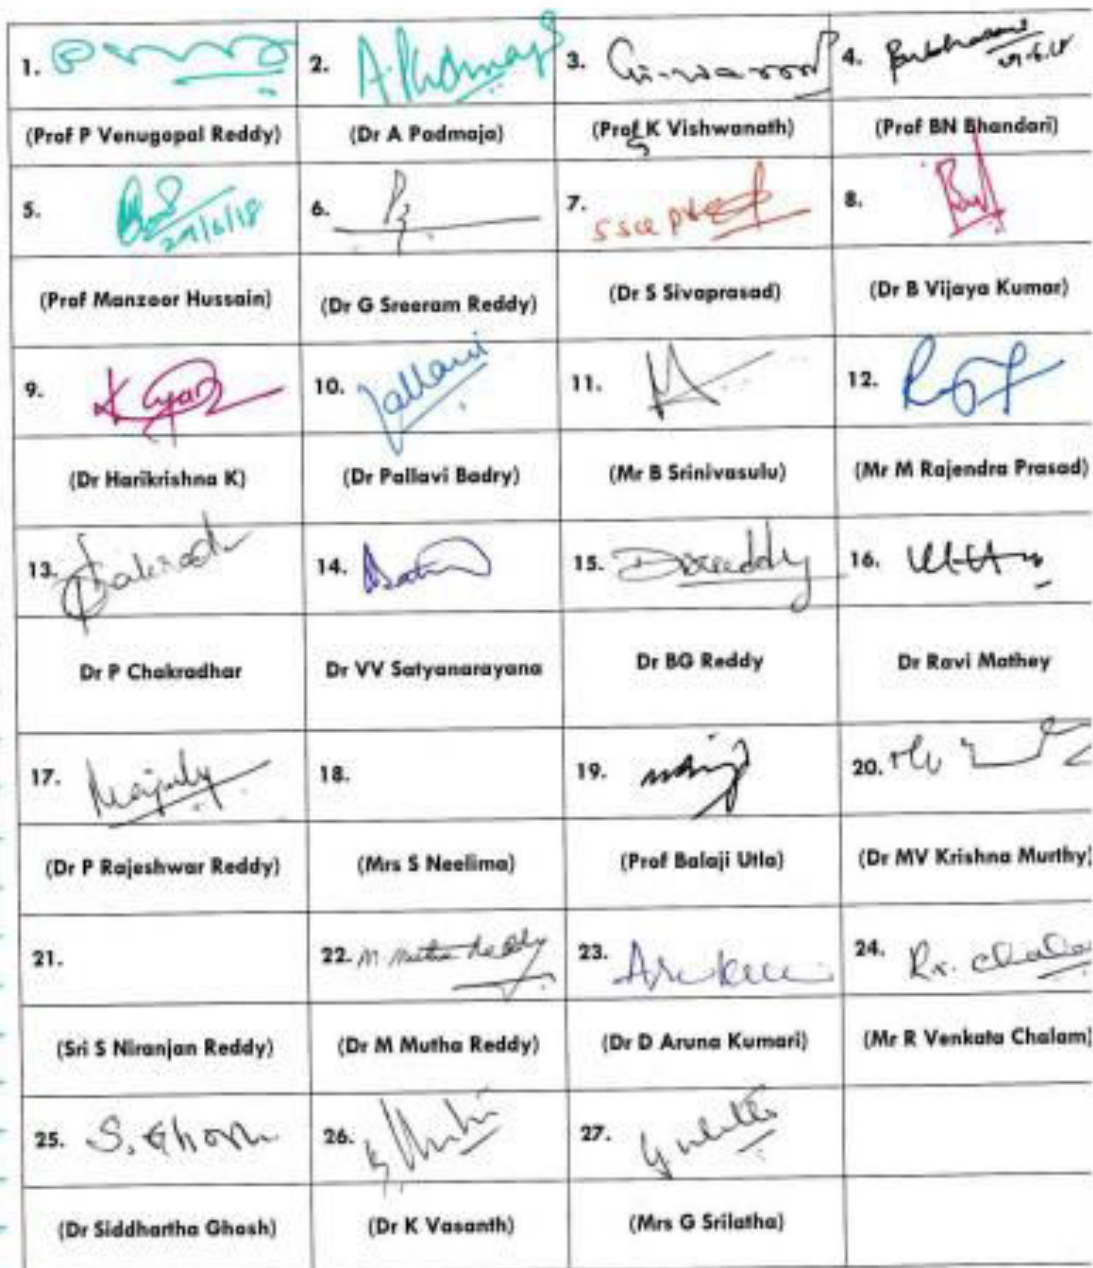 1. 2. A. Padmaja 3. 4.
(Prof P Venugopal Reddy) (Dr A Padmaja) (Prof K Vishwanath) (Prof BN Bhandari)
G
5. 29/6/18 6. 7. 8.
(Prof Manzoor Hussain) (Dr G Sreeram Reddy) (Dr S Sivaprasad) (Dr B Vijaya Kumar)
9. 10. Pallavi 11. 12.
(Dr Harikrishna K) (Dr Pallavi Badry) (Mr B Srinivasulu) (Mr M Rajendra Prasad)
13. 14. 15. 16.
Dr P Chakradhar Dr VV Satyanarayana Dr BG Reddy Dr Ravi Mathey
17. 18. 19. 20.
(Dr P Rajeshwar Reddy) (Mrs S Neelima) (Prof Balaji Utla) (Dr MV Krishna Murthy)
21. 22. M Mutha Reddy 23. 24.
(Sri S Niranjan Reddy) (Dr M Mutha Reddy) (Dr D Aruna Kumari) (Mr R Venkata Chalam)
25. S. Ghosh 26. 27.
(Dr Siddhartha Ghosh) (Dr K Vasanth) (Mrs G Srilatha)